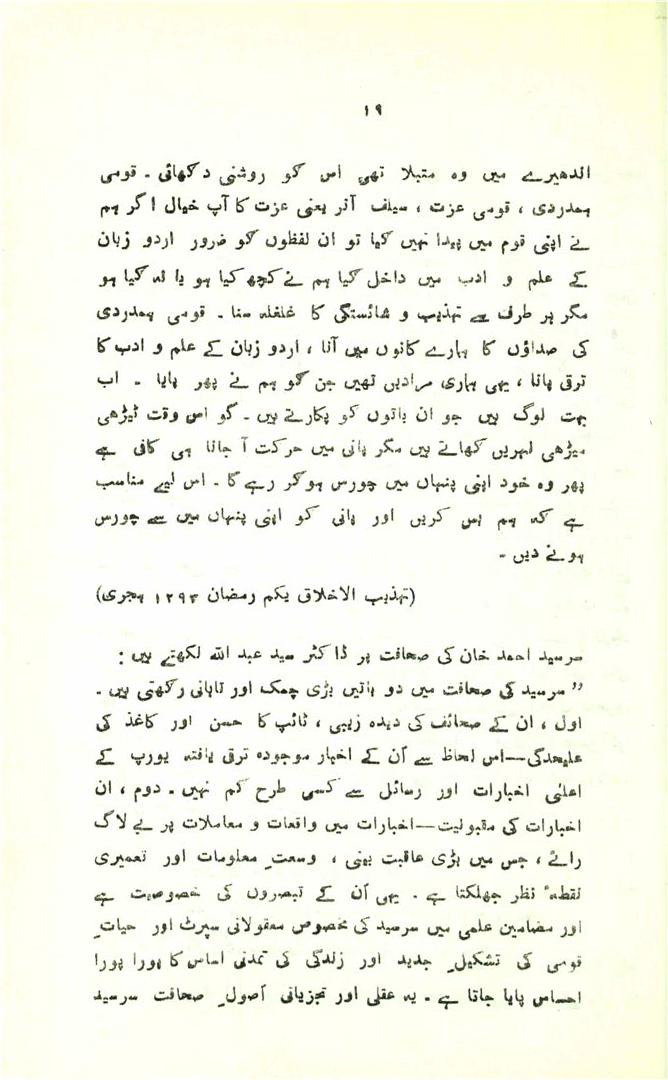 ۱۹
اندھیرے میں وہ مبتلا تھی اس کو روشنی دکھائی ۔ قومی
ہمدردی ، قومی عزت ، سیلف آنر یعنی عزت کا آپ خیال اگر ہم
نے اپنی قوم میں پیدا نہیں کیا تو ان لفظوں کو ضرور اردو زبان
کے علم و ادب میں داخل کیا ہم نے کچھ کیا ہو یا نہ کیا ہو
مگر ہر طرف سے تہذیب و شائستگی کا غلغلہ سنا ۔ قومی ہمدردی
کی صداؤں کا ہمارے کانوں میں آنا ، اردو زبان کے علم و ادب کا
ترقی پانا ، یہی ہماری مرادیں تھیں جن کو ہم نے بھر پایا ۔ اب
بہت لوگ ہیں جو ان باتوں کو پکارتے ہیں ۔ گو اس وقت ٹیڑھی
میڑھی لہریں کھاتے ہیں مگر پانی میں حرکت آ جانا ہی کافی ہے
پھر وہ خود اپنی پنہاں میں چورس ہو کر رہے گا ۔ اس لیے مناسب
ہے کہ ہم بس کریں اور پانی کو اپنی پنہاں میں سے چورس
ہونے دیں ۔
(تہذیب الاخلاق یکم رمضان ۱۲۹۳ ہجری)
سرسید احمد خان کی صحافت پر ڈاکٹر سید عبد اللہ لکھتے ہیں :
” سرسید کی صحافت میں دو باتیں بڑی چمک اور تابانی رکھتی ہیں ۔
اول ، ان کے صحائف کی دیدہ زیبی ، ٹائپ کا حسن اور کاغذ کی
علیحدگی—اس لحاظ سے اُن کے اخبار موجودہ ترقی یافتہ یورپ کے
اعلیٰ اخبارات اور رسائل سے کسی طرح کم نہیں ۔ دوم ، ان
اخبارات کی مقبولیت—اخبارات میں واقعات و معاملات پر بے لاگ
رائے ، جس میں بڑی عاقبت بینی ، وسعتِ معلومات اور تعمیری
نقطہٴ نظر جھلکتا ہے ۔ یہی اُن کے تبصروں کی خصوصیت ہے
اور مضامین علمی میں سرسید کی مخصوص معقولاتی سپرٹ اور حیاتِ
قومی کی تشکیلِ جدید اور زندگی کی تمدنی اساس کا پورا پورا
احساس پایا جاتا ہے ۔ یہ عقلی اور تجزیاتی اُصولِ صحافت سرسید